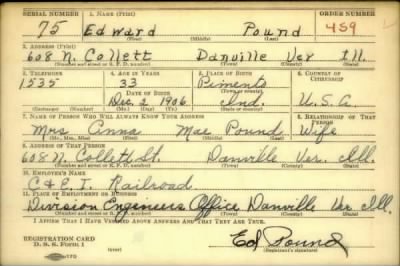 SERIAL NUMBER 1. NAME (Print) ORDER NUMBER
75 Edward Pound 459
(First) (Middle) (Last)
2. ADDRESS (Print)
608 N. Collett Danville Ver Ill.
(Number and street or R. F. D. number) (Town) (County) (State)
3. TELEPHONE 4. AGE IN YEARS 5. PLACE OF BIRTH 6. COUNTRY OF CITIZENSHIP
1535 33 Pimento
DATE OF BIRTH (Town or county)
Dec. 2 1906 Ind. U.S.A.
(Exchange) (Number) (Mo.) (Day) (Yr.) (State or country)
7. NAME OF PERSON WHO WILL ALWAYS KNOW YOUR ADDRESS 8. RELATIONSHIP OF THAT PERSON
Mrs. Anna Mae Pound Wife
(Mr., Mrs., Miss) (First) (Middle) (Last)
9. ADDRESS OF THAT PERSON
608 N. Collett St. Danville Ver. Ill.
(Number and street or R. F. D. number) (Town) (County) (State)
10. EMPLOYER'S NAME
C & E. I. Railroad
11. PLACE OF EMPLOYMENT OR BUSINESS
Division Engineers Office Danville Ver Ill.
(Number and street or R. F. D. number) (Town) (County) (State)
I AFFIRM THAT I HAVE VERIFIED ABOVE ANSWERS AND THAT THEY ARE TRUE.
REGISTRATION CARD Ed Pound
D. S. S. Form 1 (over) (Registrant's signature)